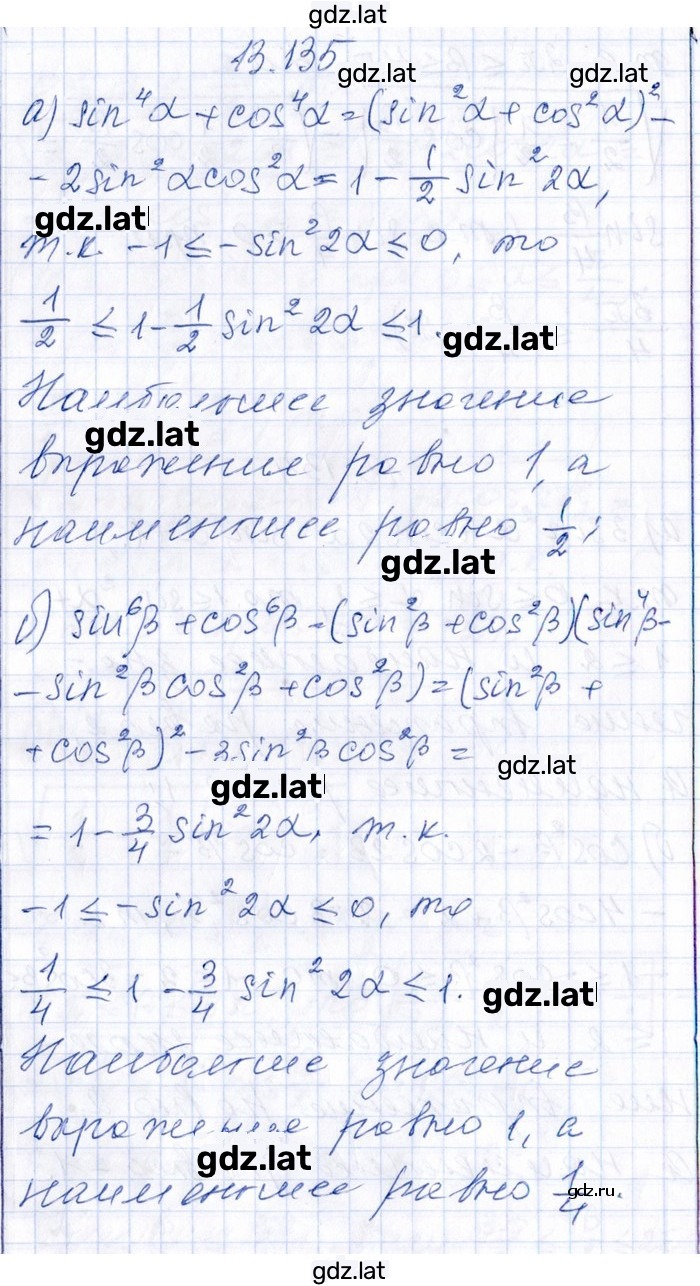 gdz.lat
13.135
gdz.lat
gdz.lat
а) sin⁴α + cos⁴α = (sin²α + cos²α)² –
– 2sin²α cos²α = 1 – 1/2 sin²2α,
gdz.lat
т.к. –1 ≤ –sin²2α ≤ 0, то
1/2 ≤ 1 – 1/2 sin²2α ≤ 1.
gdz.lat
Наибольшее значение
gdz.lat
выражение равно 1, а
наименьшее равно 1/2;
gdz.lat
б) sin⁶β + cos⁶β = (sin²β + cos²β)(sin⁴β –
– sin²β cos²β + cos²β) = (sin²β +
+ cos²β)² – 3sin²β cos²β =
gdz.lat
gdz.lat
= 1 – 3/4 sin²2α, т.к.
–1 ≤ –sin²2α ≤ 0, то
1/4 ≤ 1 – 3/4 sin²2α ≤ 1.
gdz.lat
Наибольшее значение
выражение равно 1, а
gdz.lat
наименьшее равно 1/4.
gdz.ru
gdz.lat